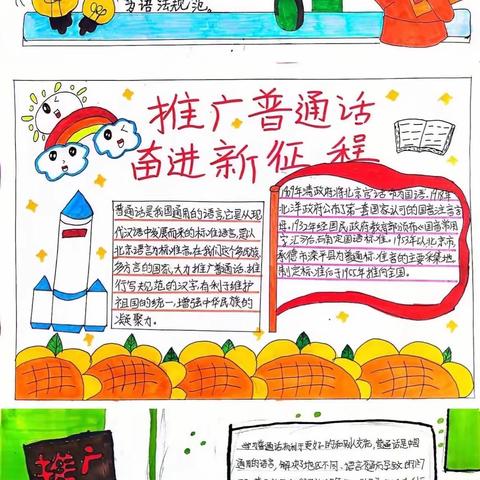 言语法规范。
推广普通话
奋进新征程
普通话是我国通用的语言,它是从现
代汉语中发展而来的标准语言,是以
北京语言为标准音。在我们这个多民族,
多方言的国家、大力推广普通话、推
行写规范的汉字有利于维护
祖国的统一、增强中华民族的
凝聚力。
清政府将北京官话命为国语。
北洋政府公布了第一套国家认可的国音注音字
母。1932年经国民政府教育部颁布《国音常用
字汇》后,确定国语标准。1953年以北京市、
承德市滦平县为普通话标准音的主要采集地,
制定标准后于1955年推向全国。
推广
普通话是中国
通用的语言,解决了地区不同、语言